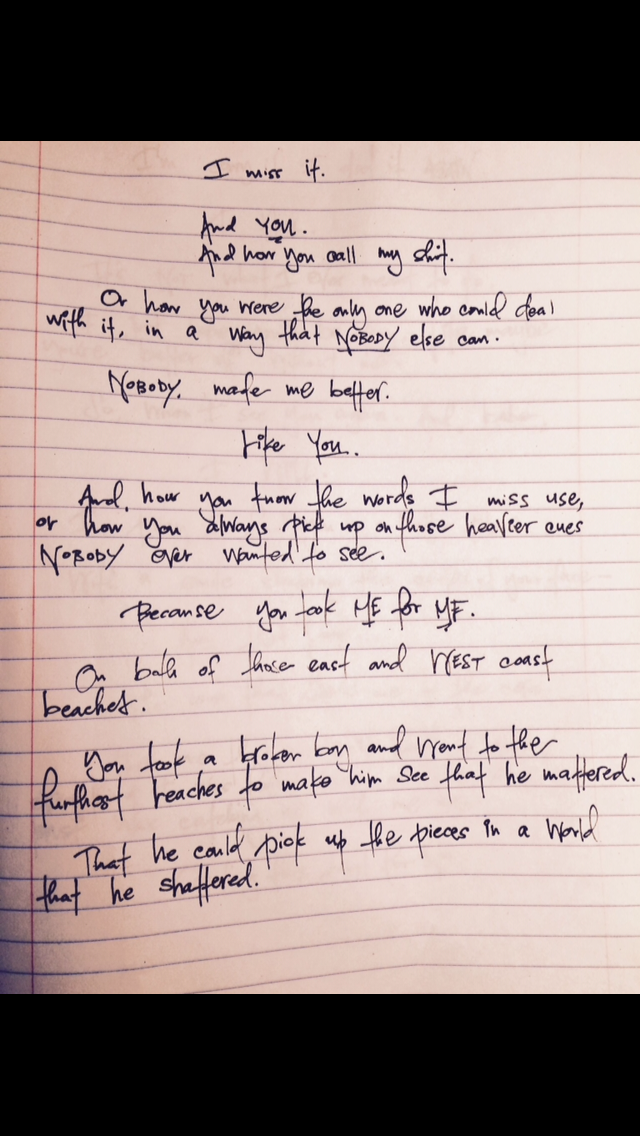 I miss it.
And YOU.
And how you call my shit.
Or how you were the only one who could deal
with it, in a way that NOBODY else can.
NOBODY. made me better.
Like You.
And, how you know the words I miss use,
or how you always pick up on those heavier cues
NOBODY ever wanted to see.
Because you took ME for ME.
On both of those east and WEST coast
beaches.
You took a broken boy and went to the
furthest reaches to make him see that he mattered.
That he could pick up the pieces in a world
that he shattered.